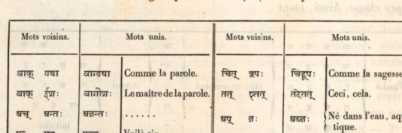 Mots voisins. Mots unis. Mots voisins. Mots unis.
वाक् यथा वाग्यथा Comme la parole. चित् रूपः चिद्रूपः Comme la sagesse
वाक् ईशः वागीशः Le maître de la parole. तत् एतत् तदेतत् Ceci, cela.
अच् अन्तः अजन्तः ...... अप् जः अब्जः Né dans l'eau, aq
tique.